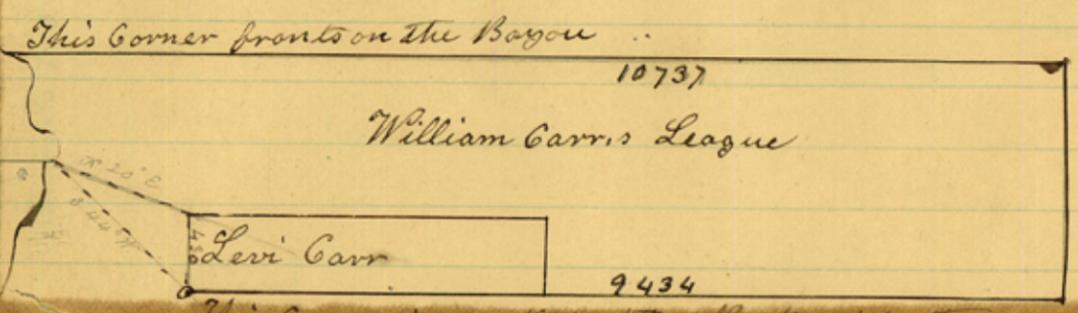 This Corner fronts on the Bayou
10737
William Carr,s League
N 20° E
S 44° W
450
Levi Carr
9434
This Corner